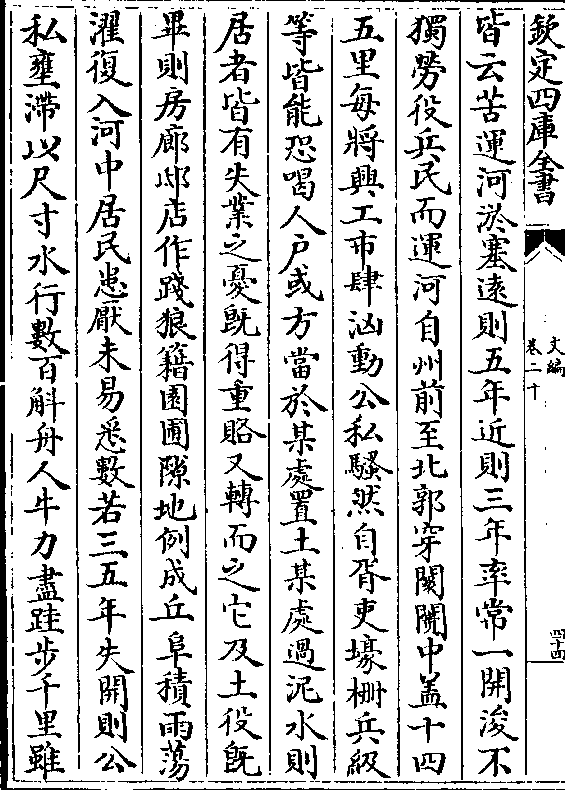 欽定四庫全書
文編
卷二十
四十四
皆云苦運河淤塞遠則五年近則三年率常一開浚不
獨勞役兵民而運河自州前至北郭穿闤闠中蓋十四
五里每將興工市肆洶動公私騷然自胥吏壕柵兵級
等皆能恐喝人户或方當於某處置土某處過泥水則
居者皆有失業之憂既得重賂又轉而之它及土役既
畢則房廊邸店作踐狼籍園圃隙地例成丘阜積雨蕩
濯復入河中居民患厭未易悉數若三五年失開則公
私壅滯以尺寸水行數百斛舟人牛力盡跬步千里雖